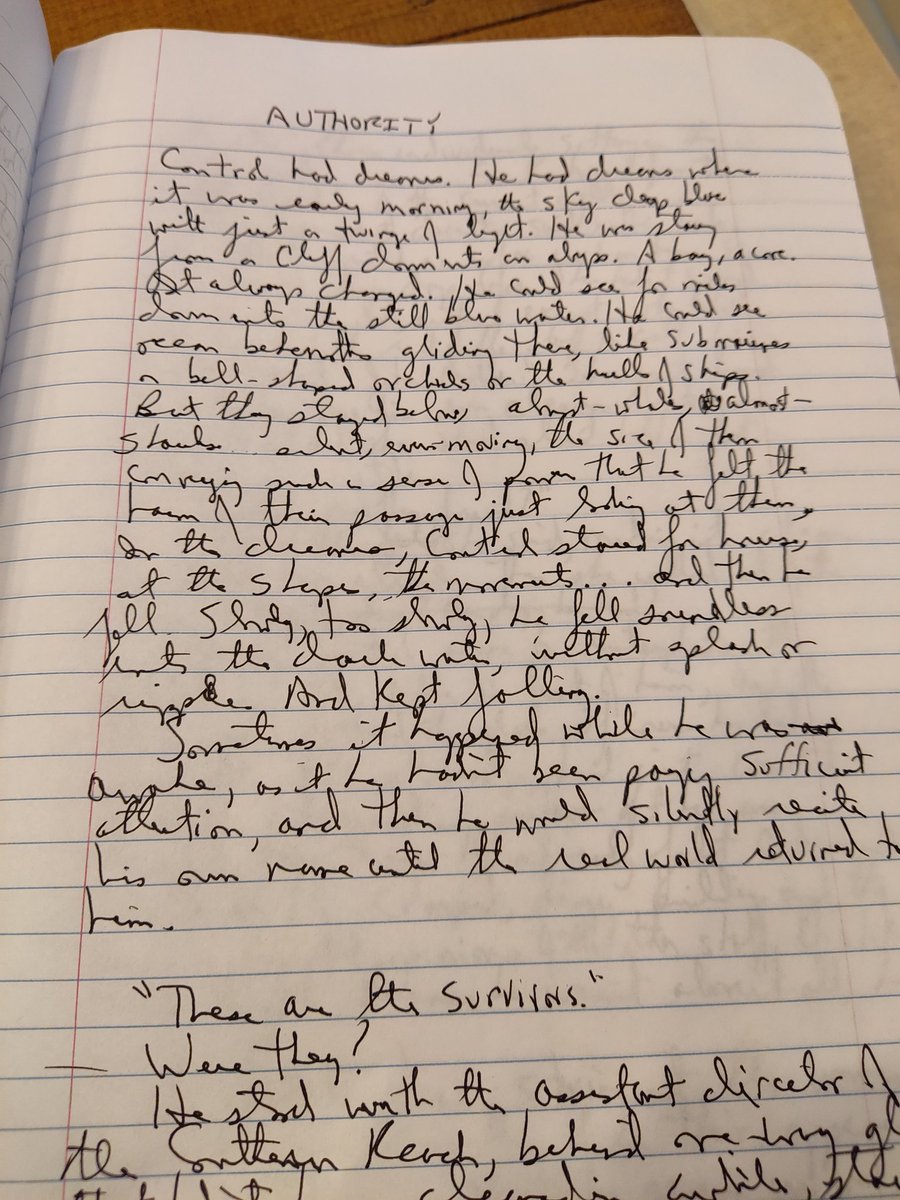 AUTHORITY
Control had dreams. He had dreams where
it was early morning, the sky deep blue
with just a twinge of light. He was staring
from a cliff down into an abyss. A bay, a cove.
It always changed. He could see for miles
down into the still blue water. He could see
ocean behemoths gliding there, like submarines
or bell-shaped orchids or the hulls of ships.
But they stayed below, almost-whale, almost-
silent, ever-moving, the size of them
conveying such a sense of power that he felt the
of their passage just looking at them.
In the dreams, Control stared for hours,
at the shapes, the movements... and then he
fell slowly, too slowly, he fell soundless
into the dark water, without splash or
ripple. And kept falling.
Sometimes it happened while he was
awake, as if he hadn't been paying sufficient
attention, and then he would silently recite
his own name until the real world returned to
him.
"These are the survivors."
— Were they?
He stood with the assistant director of
the Southern Reach, behind one-way gl